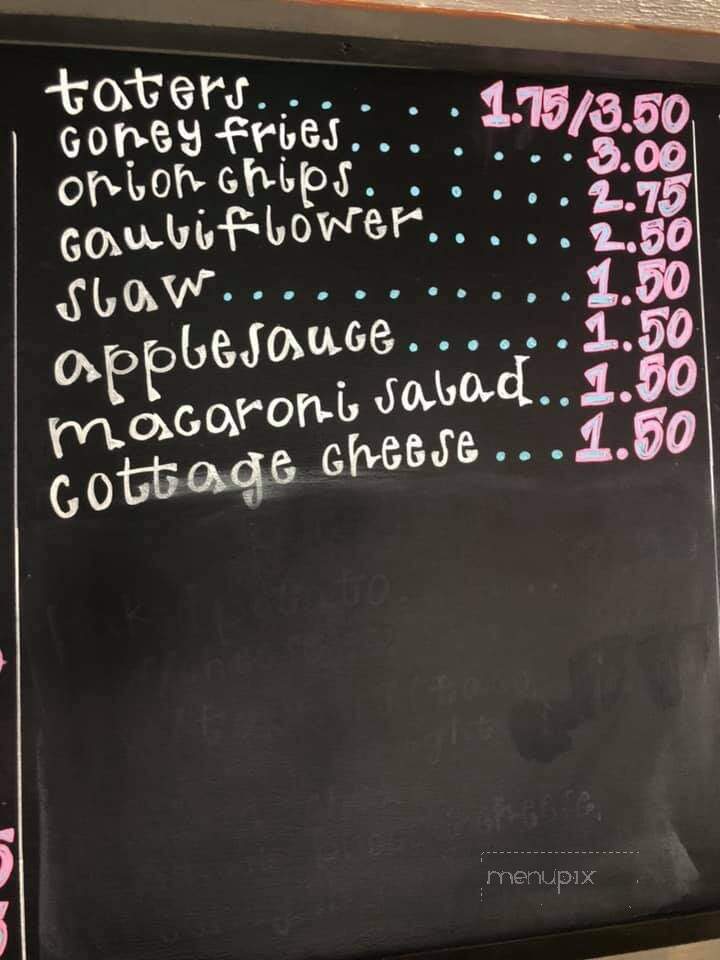 taters...... 1.75/3.50
coney fries...... 3.00
onion chips...... 2.75
cauliflower.... 2.50
slaw......... 1.50
applesauce...... 1.50
macaroni salad.. 1.50
cottage cheese... 1.50
menupix